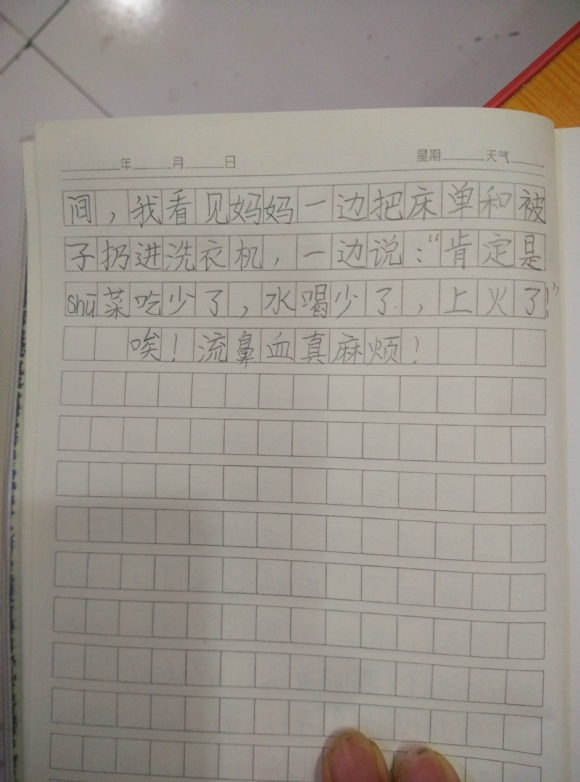 年 月 日 星期 天气
间，我看见妈妈一边把床单和被
子扔进洗衣机，一边说：“肯定是
shū菜吃少了，水喝少了，上火了。”
唉！流鼻血真麻烦！